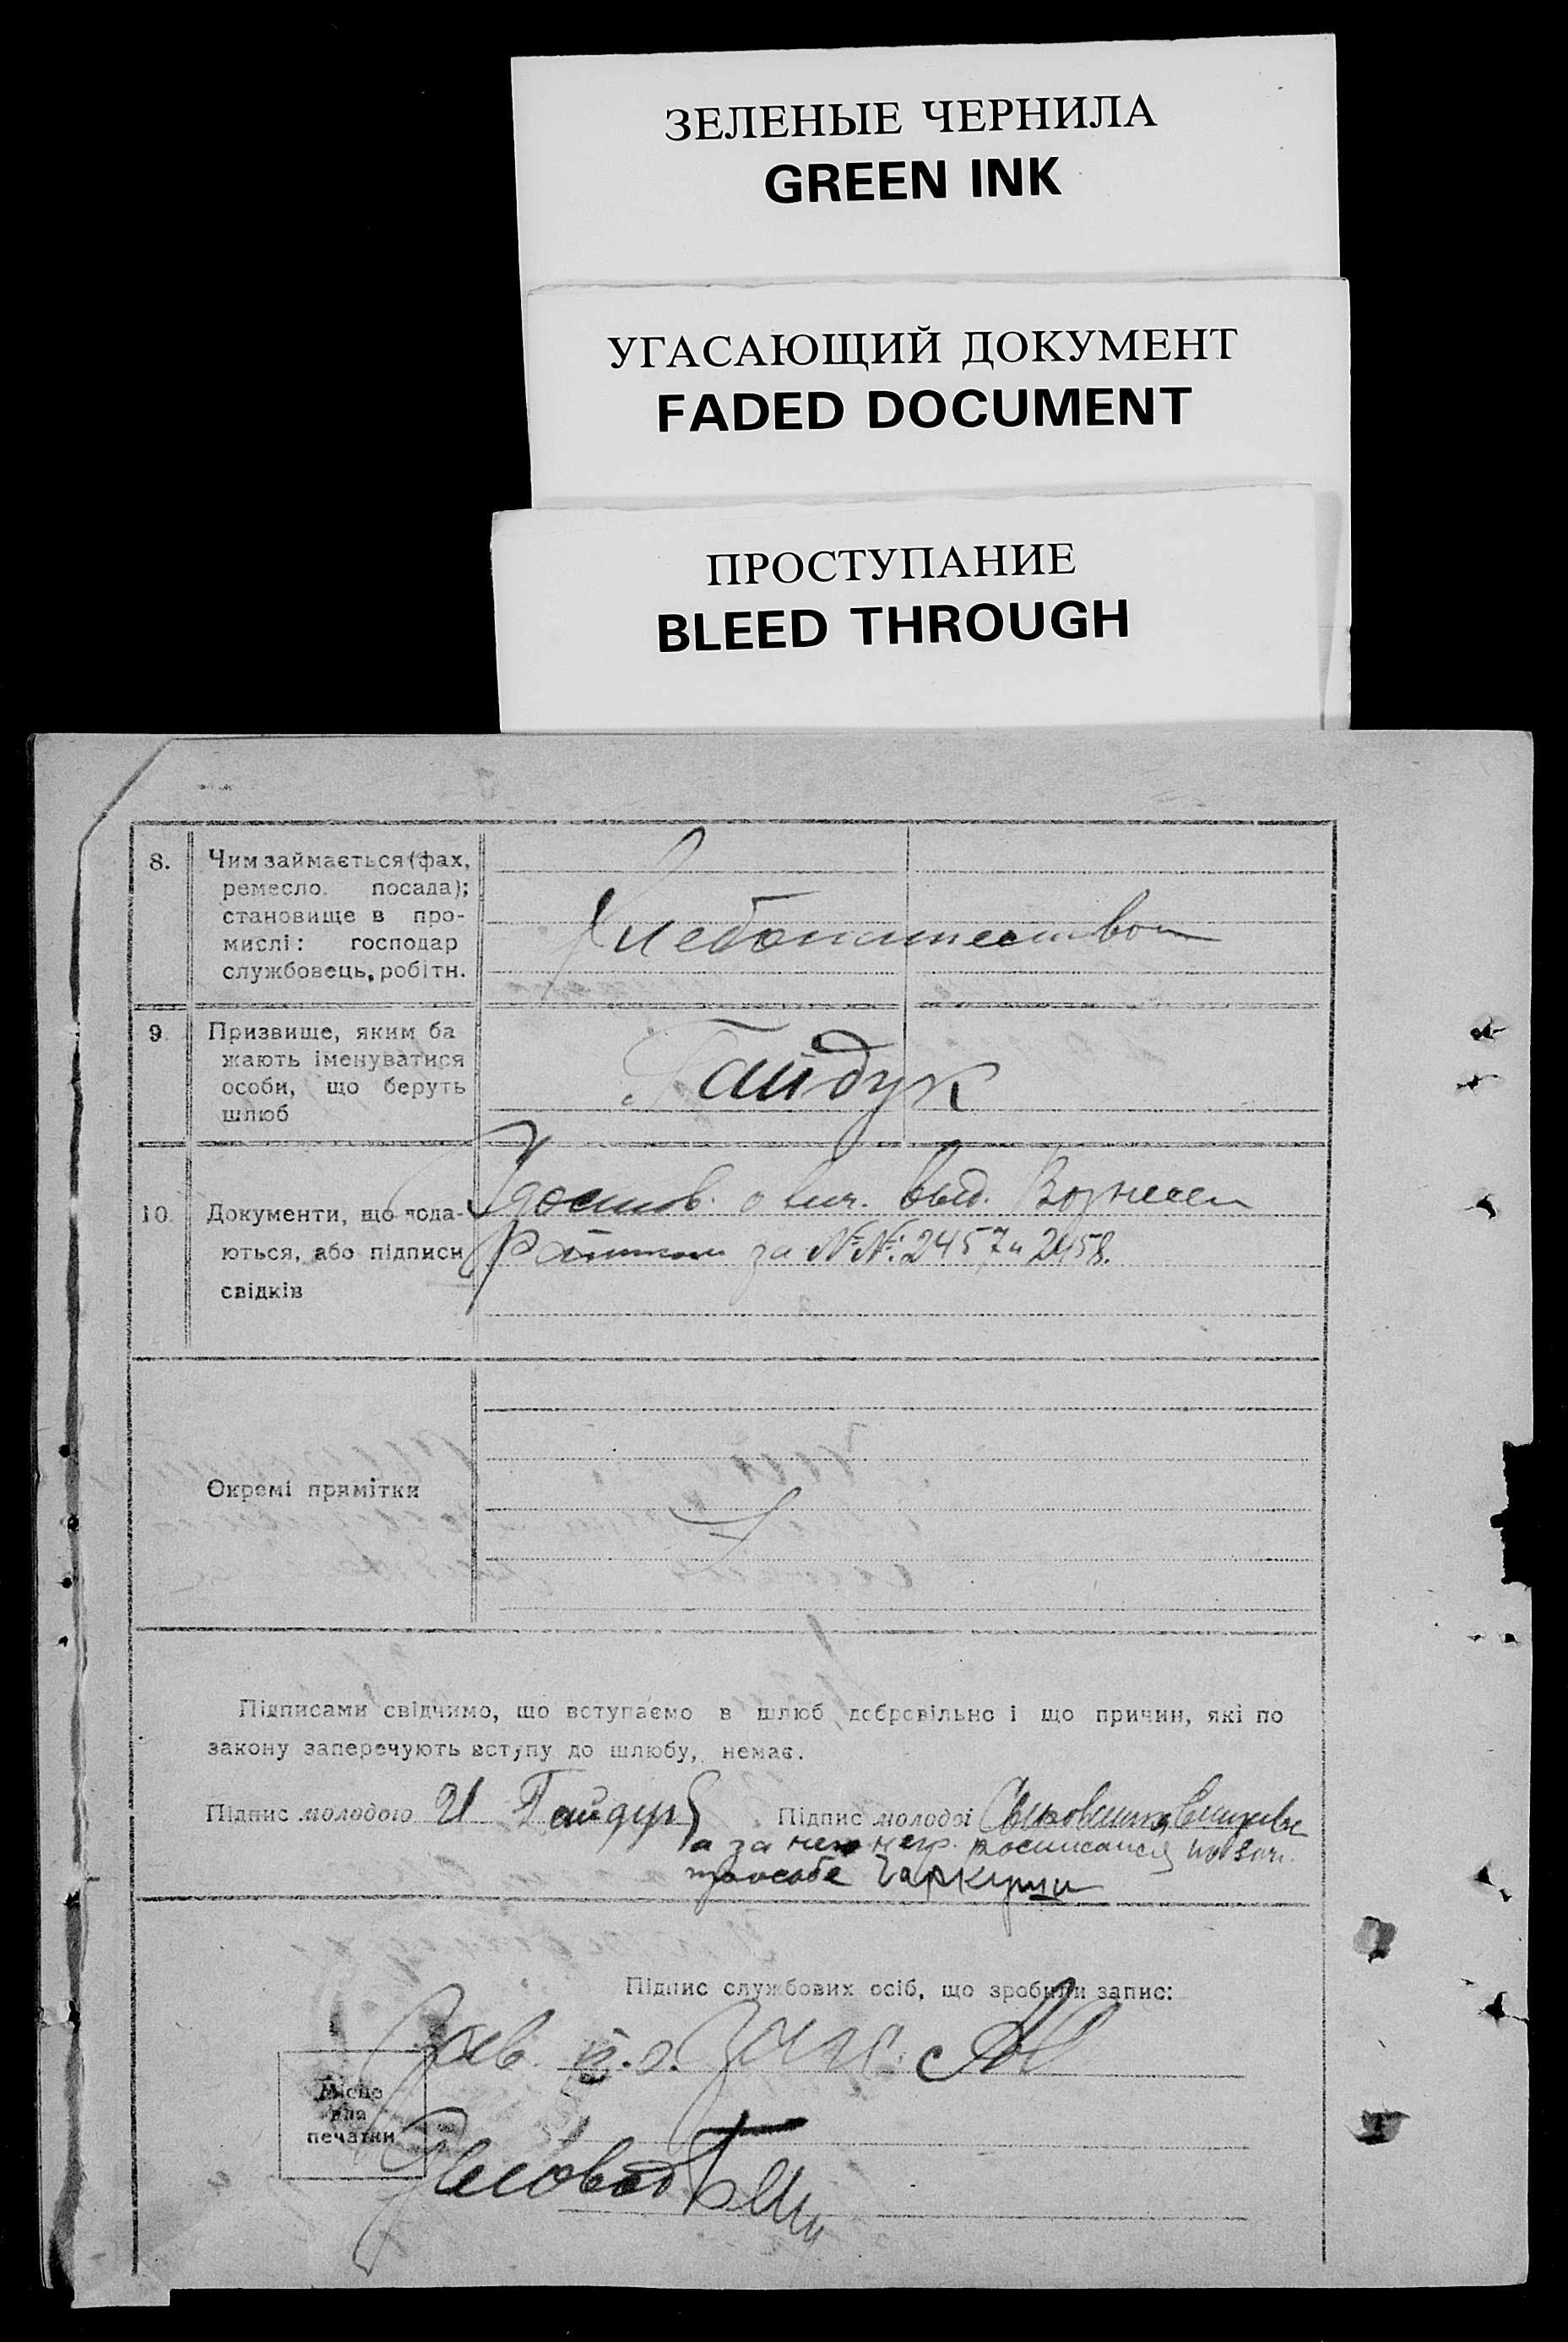 ЗЕЛЕНЫЕ ЧЕРНИЛА
GREEN INK
УГАСАЮЩИЙ ДОКУМЕНТ
FADED DOCUMENT
ПРОСТУПАНИЕ
BLEED THROUGH
8. Чим займається (фах,
ремесло. посада);
становище в про-
мислі: господар
службовець, робітн.
Хлебопашеством
9. Призвище, яким ба
жають іменуватися
особи, що беруть
шлюб
Гайдук
10. Документи, що пода-
ються, або підписи
свідків
Удостов. о лич. выд. Вознесен
за №№: 2457 и 2458.
Окремі примітки
Підписами свідчимо, що вступаємо в шлюб добровільно і що причин, які по
закону заперечують вступу до шлюбу, немає.
Підпис молодого И Гайдук Підпис молодої
а за негр. росписался по
Підпис службових осіб, що зробили запис:
Зав. п.о. Загс
Місце
для
печатки
Діловод